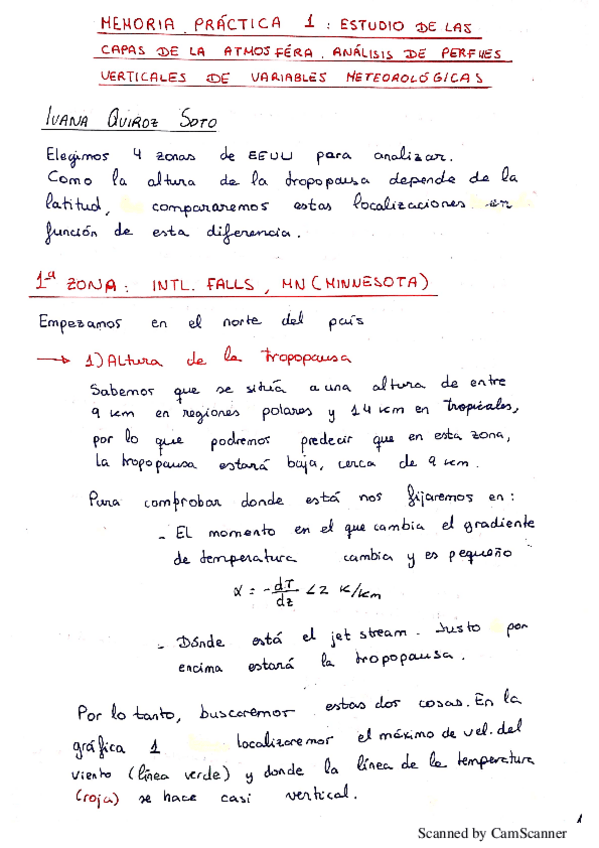 MEMORIA PRÁCTICA 1 : ESTUDIO DE LAS
CAPAS DE LA ATMOSFÉRA. ANÁLISIS DE PERFILES
VERTICALES DE VARIABLES METEOROLÓGICAS
IVANA QUIROZ SOTO
Elegimos 4 zonas de EEUU para analizar.
Como la altura de la tropopausa depende de la
latitud, compararemos estas localizaciones en
función de esta diferencia.
1ª ZONA: INTL. FALLS, MN (MINNESOTA)
Empezamos en el norte del país
→ 1) Altura de la tropopausa
Sabemos que se sitúa a una altura de entre
9 km en regiones polares y 14 km en tropicales,
por lo que podremos predecir que en esta zona,
la tropopausa estará baja, cerca de 9 km.
Para comprobar donde está nos fijaremos en:
- El momento en el que cambia el gradiente
de temperatura cambia y es pequeño
α = - dT/dz < 2 K/km
- Dónde está el jet stream. Justo por
encima estará la tropopausa.
Por lo tanto, buscaremos estas dos cosas. En la
gráfica 1 localizaremor el máximo de vel. del
viento (línea verde) y donde la línea de la temperatura
(roja) se hace casi vertical.
1
Scanned by CamScanner